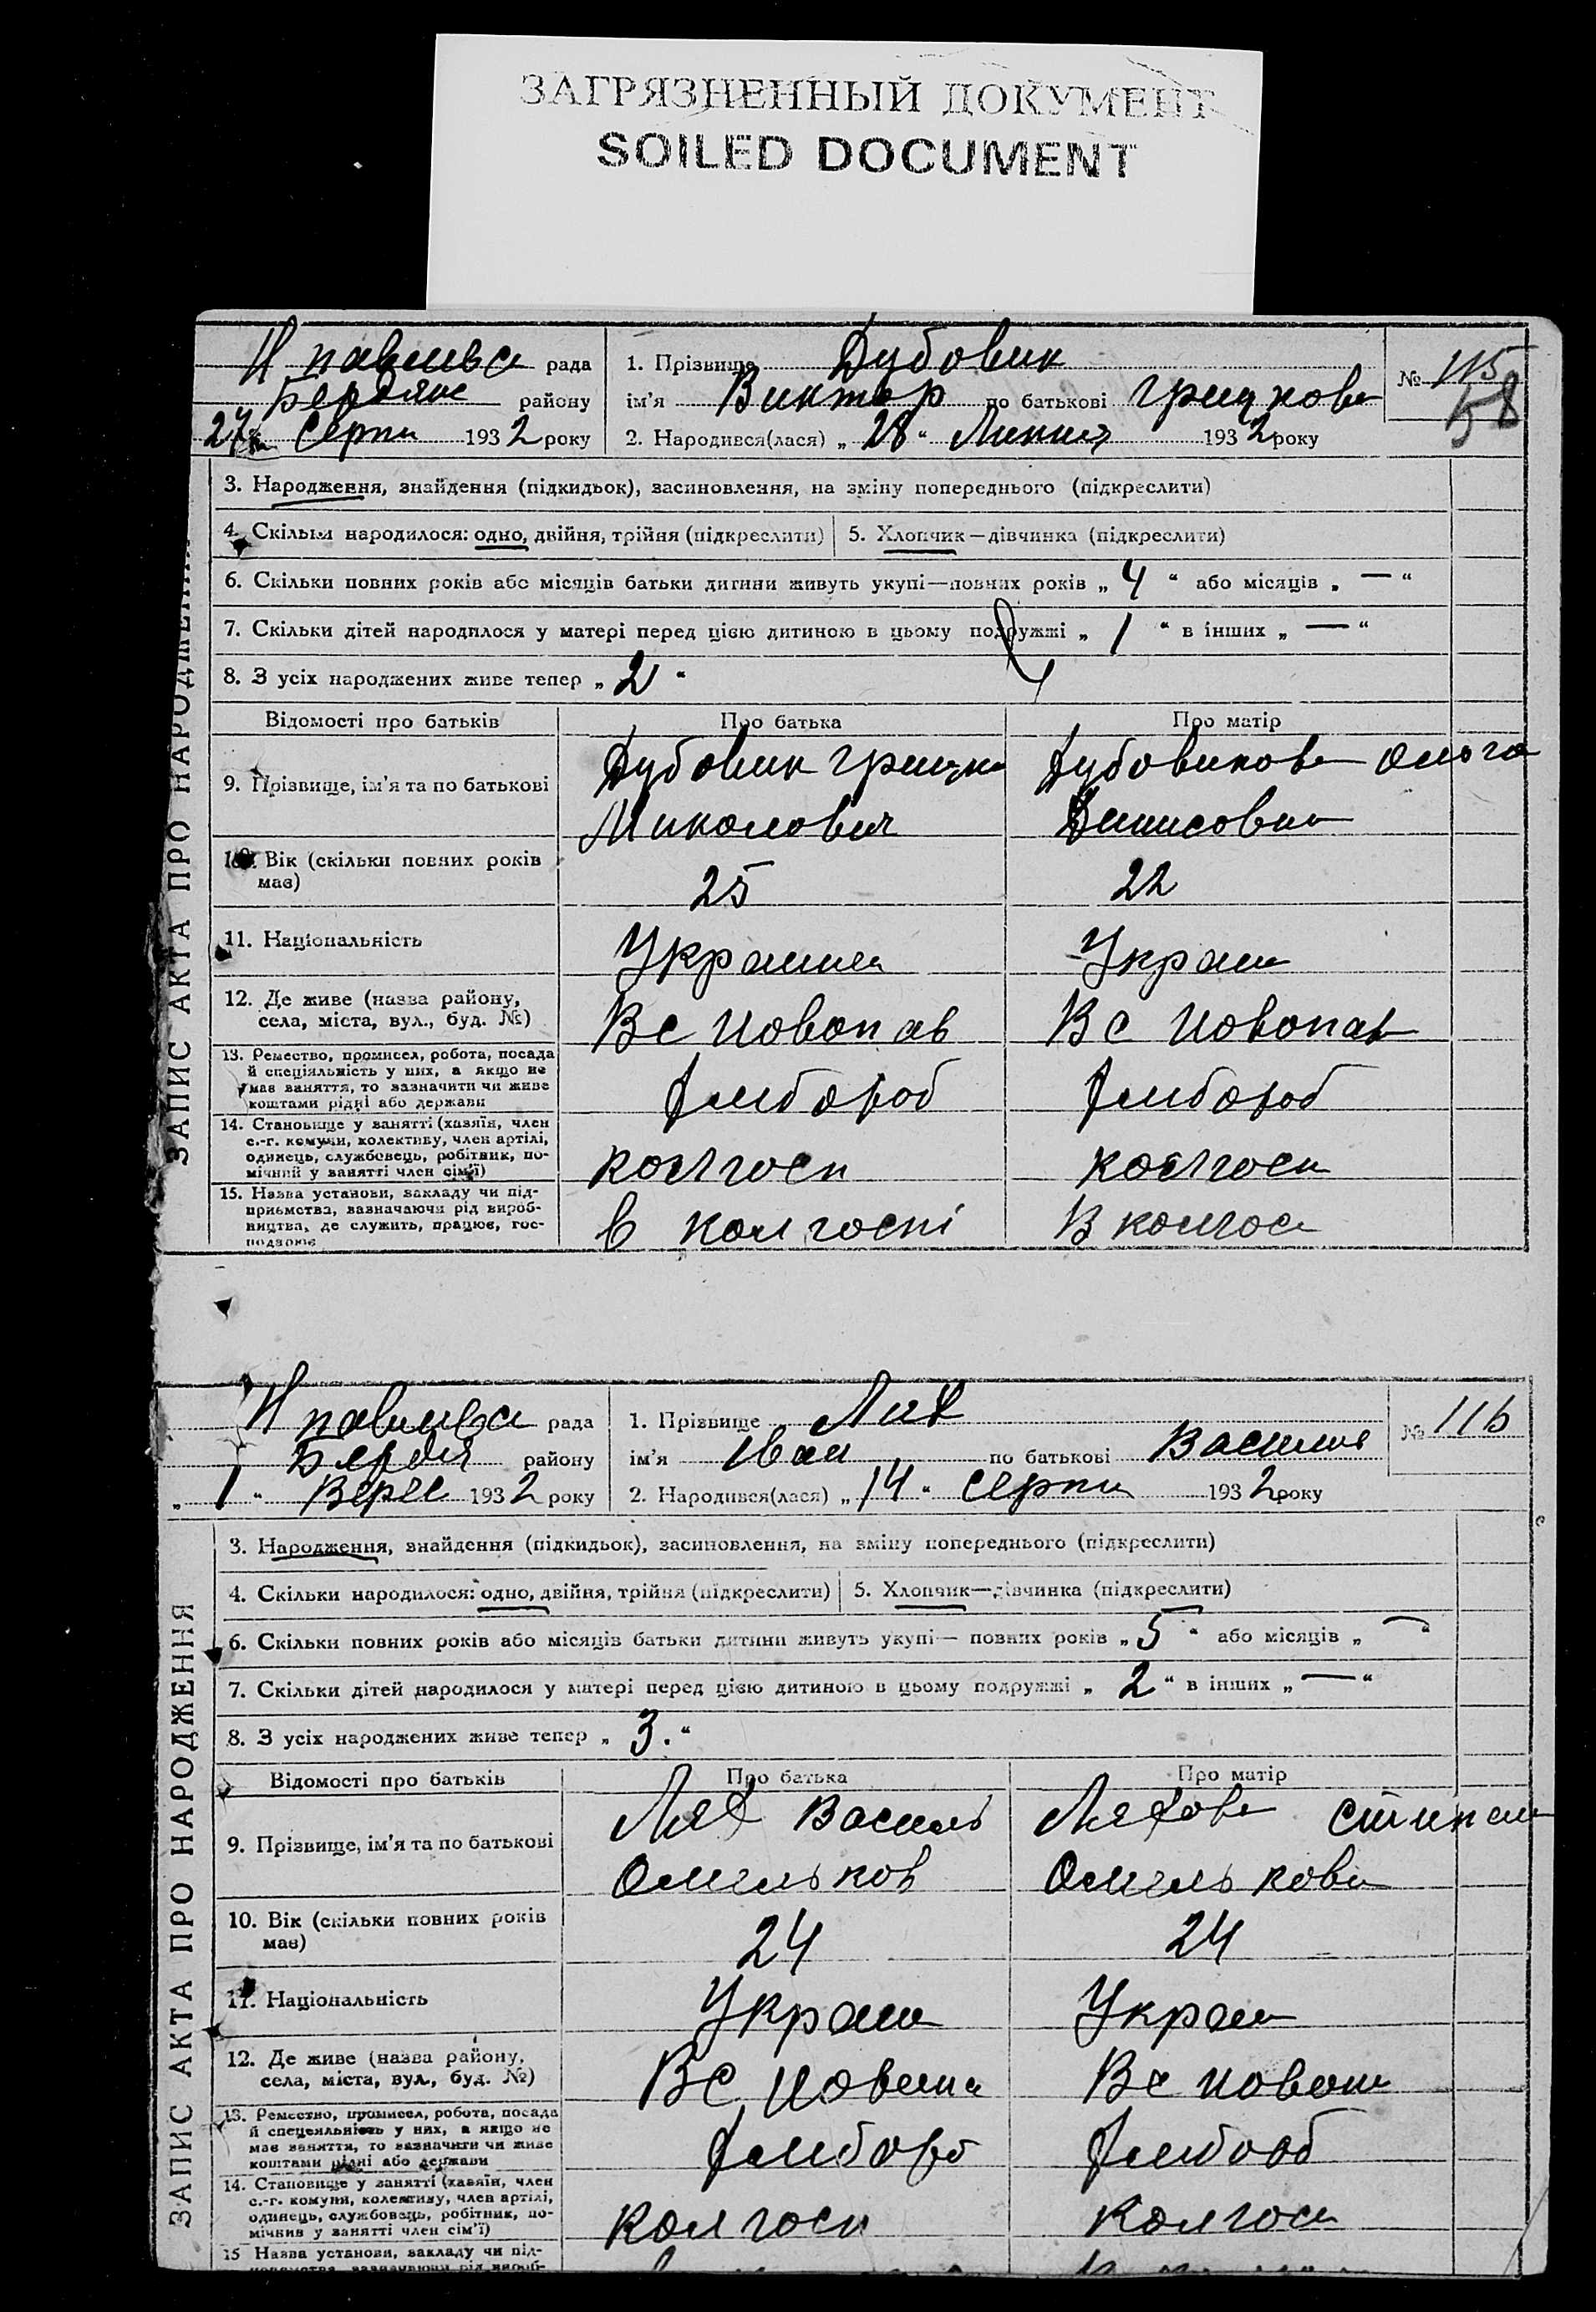 ЗАГРЯЗНЕННЫЙ ДОКУМЕНТ
SOILED DOCUMENT
Н павливс рада
Бердянс району
27 Серпн 1932 року
1. Прізвище Дубовик
ім'я Виктор по батькові Грицкове
2. Народився(лася) „28“ Липня 1932 року
№ 115
58
ЗАПИС АКТА ПРО НАРОДЖЕННЯ
3. Народження, знайдення (підкидьок), засиновлення, на зміну попереднього (підкреслити)
4. Скільки народилося: одно, двійня, трійня (підкреслити)
5. Хлопчик—дівчинка (підкреслити)
6. Скільки повних років або місяців батьки дитини живуть укупі—повних років „4“ або місяців „—“
7. Скільки дітей народилося у матері перед цією дитиною в цьому подружжі „1“ в інших „—“
8. З усіх народжених живе тепер „2“
Відомості про батьків Про батька Про матір
9. Прізвище, ім'я та по батькові
Дубовик Грицко
Миколович
Дубовикова
Денисовна
10. Вік (скільки повних років має)
25 22
11. Національність
Украинец Украи
12. Де живе (назва району,
села, міста, вул., буд. №)
Вс Новопав Вс Новопав
13. Ремество, промисел, робота, посада
й спеціяльність у них, а якщо не
має заняття, то зазначити чи живе
коштами рідні або держави
Хлибороб Хлибороб
14. Становище у занятті (хазяїн, член
с.-г. комуни, колективу, член артілі,
одинець, службовець, робітник, по-
мічний у занятті член сім'ї)
колгосп колгосп
15. Назва установи, закладу чи під-
приємства, зазначаючи рід вироб-
ництва, де служить, працює, гос-
подарює
в колгоспі В колгос
Н павливс рада
Бердя району
„1“ Верес 1932 року
1. Прізвище Лях
ім'я Іван по батькові Василів
2. Народився(лася) „14“ Серпн 1932 року
№ 116
ЗАПИС АКТА ПРО НАРОДЖЕННЯ
3. Народження, знайдення (підкидьок), засиновлення, на зміну попереднього (підкреслити)
4. Скільки народилося: одно, двійня, трійня (підкреслити)
5. Хлопчик—дівчинка (підкреслити)
6. Скільки повних років або місяців батьки дитини живуть укупі— повних років „5“ або місяців „—“
7. Скільки дітей народилося у матері перед цією дитиною в цьому подружжі „2“ в інших „—“
8. З усіх народжених живе тепер „3.“
Відомості про батьків Про батька Про матір
9. Прізвище, ім'я та по батькові
Лях Василь
Омельков
Ляхова
Омелькова
10. Вік (скільки повних років
має)
24 24
11. Національність
Украи Украи
12. Де живе (назва району,
села, міста, вул., буд. №)
ВС Новопа Вс Новопа
13. Ремество, промисел, робота, посада
й спецеяльність у них, а якщо не
має заняття, то зазначити чи живе
коштами рідні або держави
Хлиборо Хлибооб
14. Становище у занятті (хазяїн, член
с.-г. комуни, колективу, член артілі,
одинець, службовець, робітник, по-
мічник у занятті член сім'ї)
колгосп колгос
15 Назва установи, закладу чи під-
приємства, зазначаючи рід вироб-